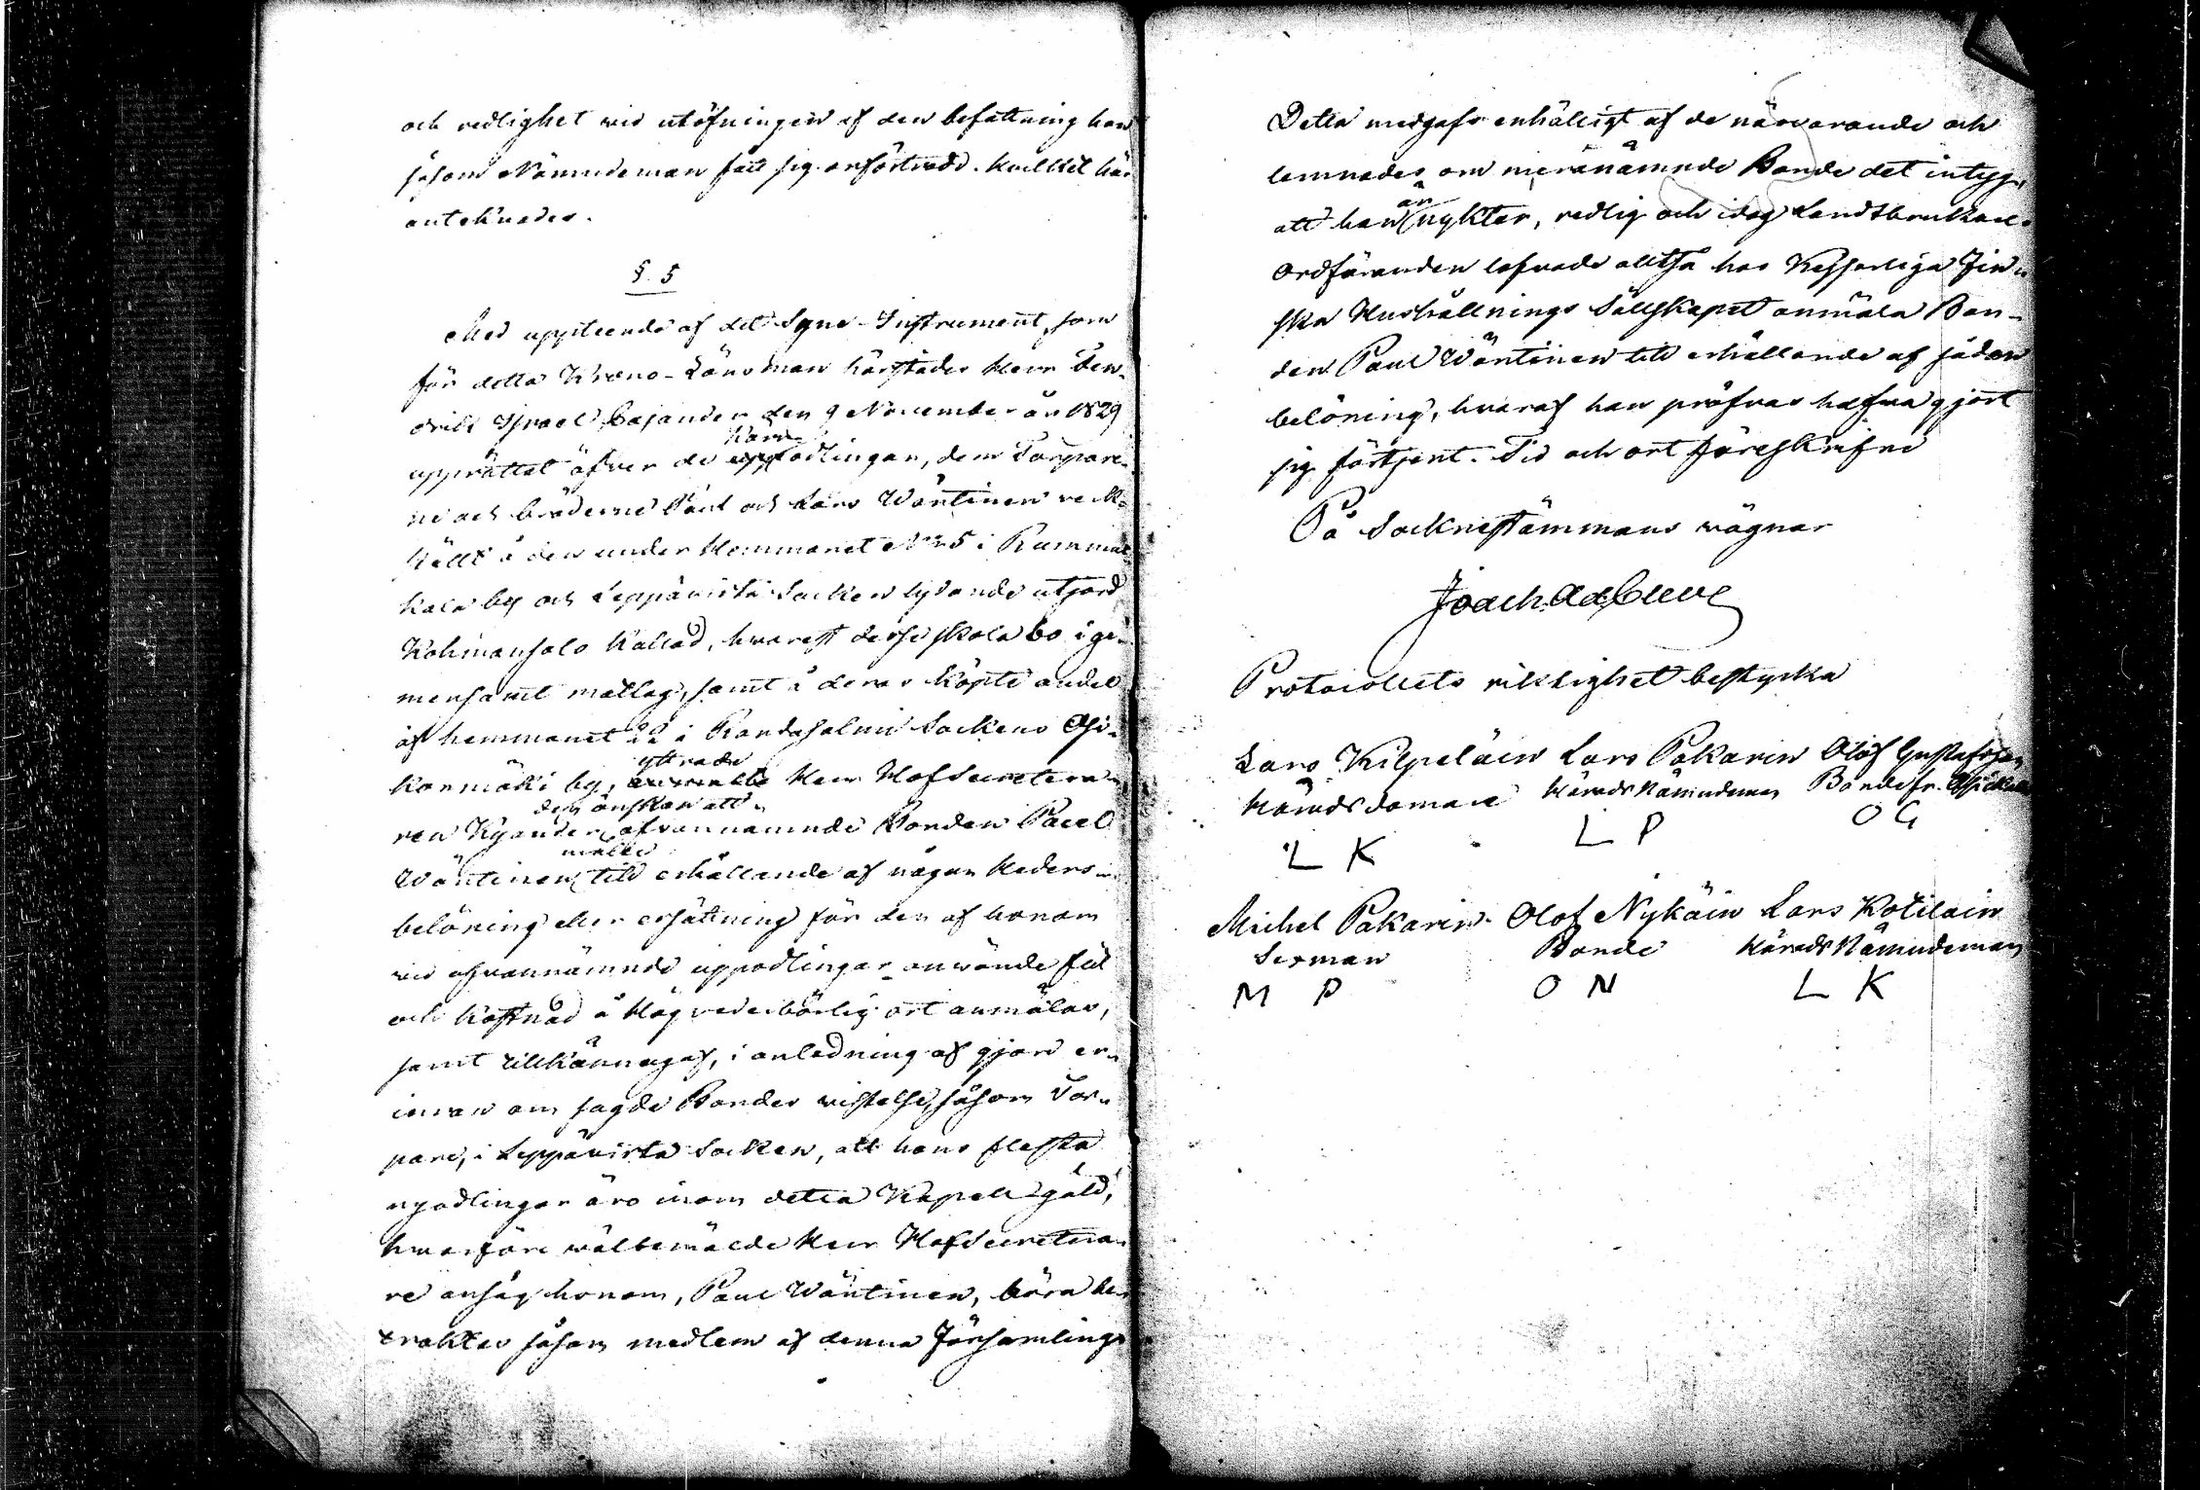 och redlighet vid utöfningen af den befattning han
såsom Nämndeman fått sig anförtrodd. hvilket här
antecknades.
§. 5
Med uppteende af det Syne-Instrument, som
för detta Krono-Länsman härstädes Herr Hen-
drik Israel Cajander den 9 November år 1829
upprättat öfver de kärrodlingar, dem Torpare-
ne och bröderne Paul och Lars Wäntinen verk-
ställt å den under Hemmanet No 5 i Rummu-
kala by och Leppävirta Socken lydande utjord
Kohmansalo kallad, hvarest desse skola bo i ge-
mensamt matlag, samt å deras köpte andel
af hemmanet 22 i Randasalmi Sockens Osi-
konmäki by, yttrade Herr HofSecretera-
ren Kyander den önskan att ofvannämnde Bonden Paul
Wäntinen måtte till erhållande af någon heders-
belöning eller ersättning för den af honom
vid ofvannämnde uppodlingar använde flit
och kostnad å Hög vederbörlig ort anmälas,
samt tillkännagaf, i anledning af gjord er-
inran om sagde Bondes vistelse, såsom Tor-
pare, i Leppävirta Socken, att hans flesta
uppodlingar äro inom detta Kapell gäld,
hvarföre välbemälde Herr HofSecretera-
re ansåg honom, Paul Wäntinen, böra be-
traktas såsom medlem af denna Församling.
Detta medgafs enhälligt af de närvarande och
lemnades om meranämnde Bonde det intyg,
att han är nykter, redlig och idog Landtbrukare.
Ordföranden lofvade alltså hos Kejserliga Fin-
ska Hushållnings Sällskapet anmäla Bon-
den Paul Wäntinen till erhållande af sådan
belöning, hvaraf han pröfvas hafva gjort
sig förtjent. Tid och ort föreskrifne
På Socknestämmans vägnar
Joach. Ad. Cleve
Protocollets riktighet bestyrka
Lars Kilpeläin Lars Pakarin Olof Gustafsson
Häradsdomare HäradsNämndeman Bonde fr.
L K L P O G
Michel Pakarin Olof Nykäin Lars Kotilain
Sexman Bonde HäradsNämndeman
M P O N L K